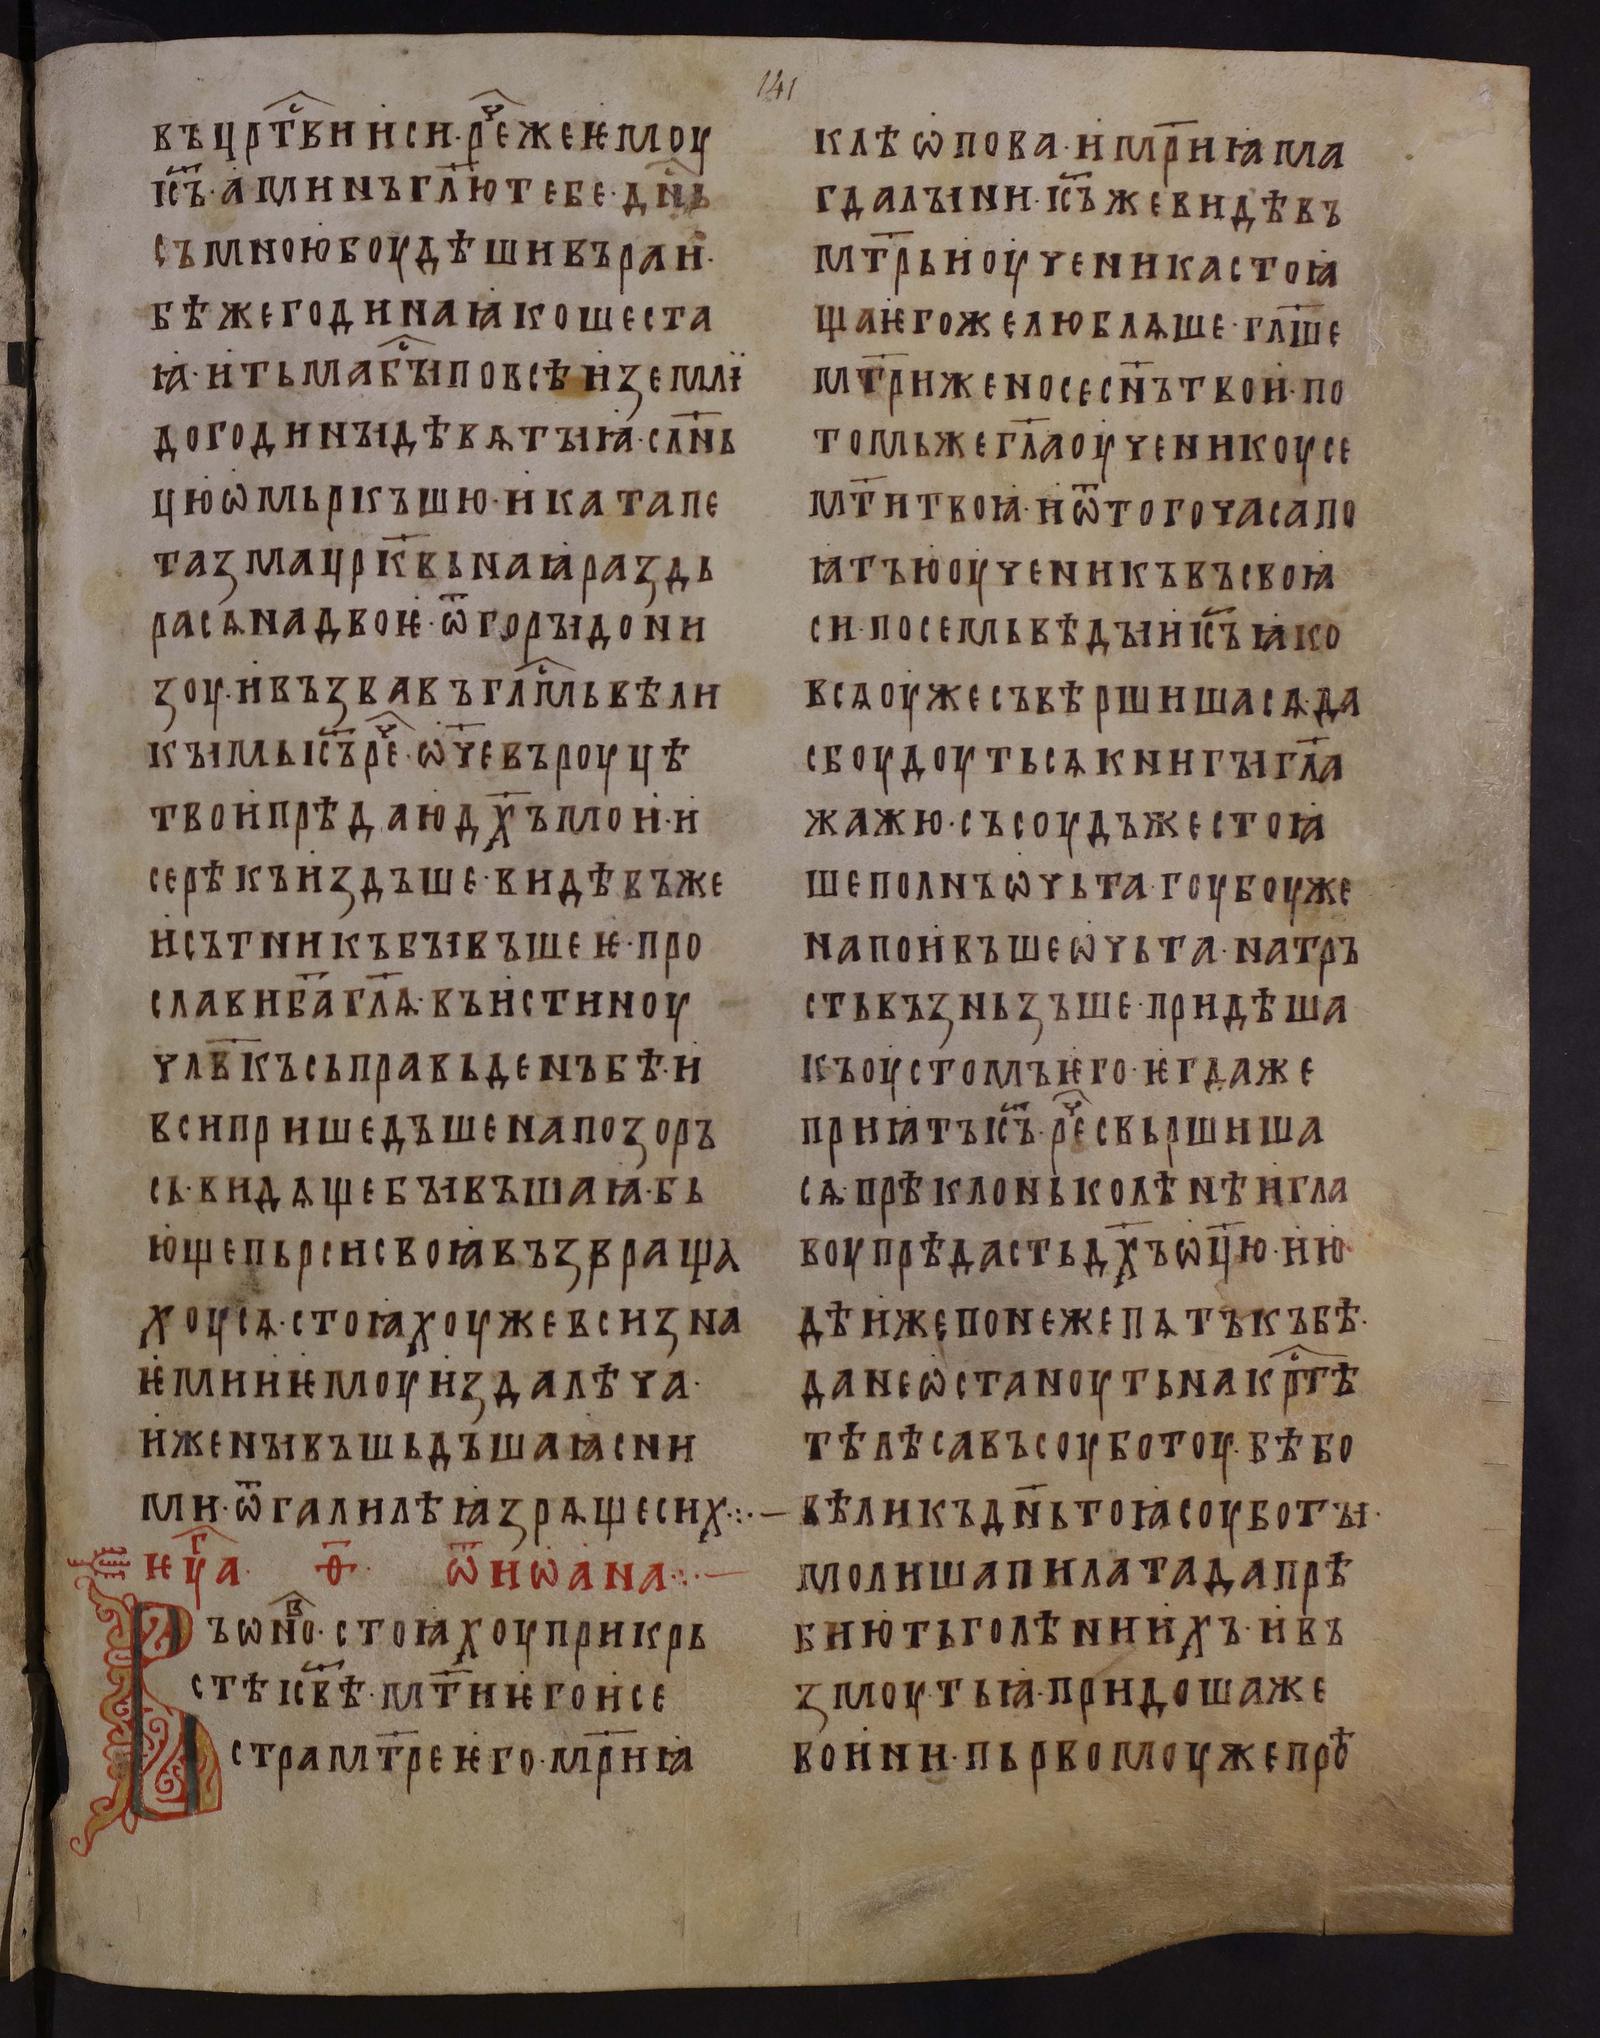 141
въцр҃твиисн·рⷱ҇ежеѥмоу
іс҃ъ·аминъгл҃ютебе·дн҃ь
съмноюбоудѣшивъраи·
бѣжегодинаꙗкошеста
ꙗ·итьмабы̑повсѣиꙁемлї
догодинъідѣвѧтъіꙗ·слн҃ь
цюѡмьркъшю·иката̇пе
таꙁмацрк҃вьнаꙗраꙁдь
расѧнадвоѥ·ѿгоръідони
ꙁоу·ивъꙁвавъглⷭ҇мьвѣли
къімьіс҃ърⷱ҇е·ѡч҃евъроуцѣ
твоипрѣдаюдх҃ъмои·и
серѣкъиꙁдъше·видѣвъже
исътникъбъівъшеѥ·про
славиб҃агл҃ѧ·въистиноу
члв҃късьправьденъбѣ·и
всипришедъшенапоꙁоръ
сь·видѧщебъівъшаꙗ·бь
ющепьрсисвоꙗвъꙁвраща
хоусѧ·стоꙗхоужевсиꙁна
ѥмииѥмоуиꙁдалѣча·
иженъівъшьдъшаꙗсни
ми·ѿгалилѣꙗꙁрѧщесих·:·—
ѥу҃а· ѳ҃· ѿиѡана·:·—
Въѡноⷡ·стоꙗхоуприкрь
стѣіс҃вѣ·мт҃иѥгоисе
страмт҃реѥго·мр҃иꙗ
клѣѡпова·имр҃иꙗма
гдалъіни·іс҃ъжевидѣвъ
мт҃рьиоученикастоꙗ
щаѥгожелюблѧше·гл҃ше
мт҃риженосесн҃ътвои·по
томьжегл҃аоученикоусе
мт҃итвоꙗ·иѿтогочасапо
ꙗтъюоученикъвъсвоꙗ
си·посемьвѣдъіиіс҃ъꙗко
всѧоужесъвѣршишасѧ·да
сбоудоутьсѧкнигъігл҃а
жажю·съсоудъжестоꙗ
шеполнъѡчьта·гоубоуже
напоивъшеѡчьта·натръ
стьвъꙁньꙁъше·придѣша
къоустомъѥго·ѥгдаже
приꙗтъіс҃ъ·рⷱ҇есвьршиша
сѧ·прѣклоньколѣнѣигла
воупрѣдастьдх҃ъѡц҃ю·ию
дѣижепонежепѧтъкъбѣ·
данеѡстаноутьнакрⷭ҇тѣ
тѣлѣсавъсоуботоу·бѣбо
вѣликъдн҃ьтоꙗсоуботъі·
молишапилатадапрѣ
биютьголѣниихъ·ивъ
ꙁмоутьꙗ·придошаже
воини·пьрвомоужепрѣ